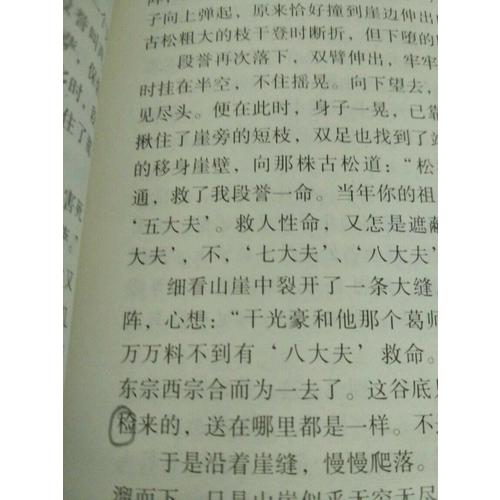 子向上弹起，原来恰好撞到崖边伸出
古松粗大的枝干登时断折，但下堕的
段誉再次落下，双臂伸出，牢牢
时挂在半空，不住摇晃。向下望去，
见尽头。便在此时，身子一晃，已靠
揪住了崖旁的短枝，双足也找到了
的移身崖壁，向那株古松道：“松
通，救了我段誉一命。当年你的祖
‘五大夫’。救人性命，又怎是遮蔽
大夫’，不，‘七大夫’、‘八大夫’
细看山崖中裂开了一条大缝，
阵，心想：“干光豪和他那个葛师
万万料不到有‘八大夫’救命。
东宗西宗合而为一去了。这谷底
检来的，送在哪里都是一样。不
于是沿着崖缝，慢慢爬落。
溜而下，只是山崖似乎无穷无尽